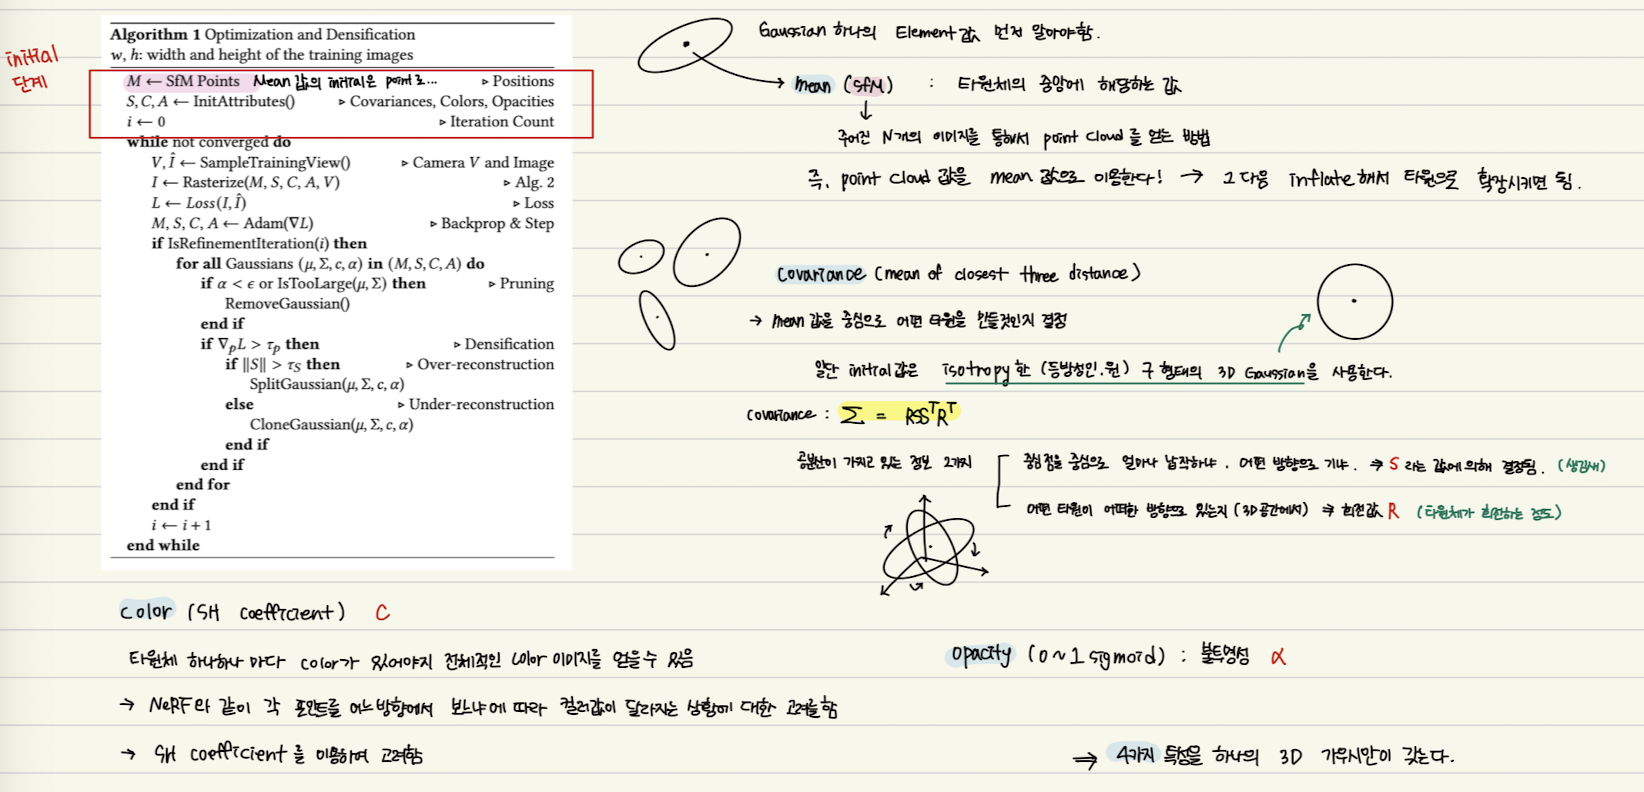 initial
단계
Algorithm 1 Optimization and Densification
w, h: width and height of the training images
M ← SfM Points Mean 값의 initial은 point로... ▹ Positions
S, C, A ← InitAttributes() ▹ Covariances, Colors, Opacities
i ← 0 ▹ Iteration Count
while not converged do
V, Î ← SampleTrainingView() ▹ Camera V and Image
I ← Rasterize(M, S, C, A, V) ▹ Alg. 2
L ← Loss(I, Î) ▹ Loss
M, S, C, A ← Adam(∇L) ▹ Backprop & Step
if IsRefinementIteration(i) then
for all Gaussians (μ, Σ, c, α) in (M, S, C, A) do
if α < ϵ or IsTooLarge(μ, Σ) then ▹ Pruning
RemoveGaussian()
end if
if ∇ₚL > τₚ then ▹ Densification
if ‖S‖ > τ_S then ▹ Over-reconstruction
SplitGaussian(μ, Σ, c, α)
else ▹ Under-reconstruction
CloneGaussian(μ, Σ, c, α)
end if
end if
end for
end if
i ← i + 1
end while
Gaussian 하나의 Element값 먼저 알아야함.
mean (SfM) : 타원체의 중앙에 해당하는 값
주어진 N개의 이미지를 통해서 point cloud를 얻는 방법
즉, point cloud 값을 mean 값으로 이용한다! → 그 다음 inflate해서 타원으로 확장시키면 됨.
covariance (mean of closest three distance)
→ mean 값을 중심으로 어떤 타원을 만들것인지 결정
일단 initial값은 isotropy한 (등방성인. 원) 구 형태의 3D Gaussian을 사용한다.
covariance : Σ = RSSᵀRᵀ
공분산이 가지고 있는 정보 2가지
중심점을 중심으로 얼마나 납작하냐. 어떤 방향으로 기냐. ⇒ S 라는 값에 의해 결정됨. (생김새)
어떤 타원이 어떠한 방향으로 있는지 (3D공간에서) ⇒ 회전값 R (타원체가 회전하는 정도)
color (SH coefficient) C
타원체 하나하나 마다 color가 있어야지 전체적인 color 이미지를 얻을 수 있음
→ NeRF와 같이 각 포인트를 어느방향에서 보느냐에 따라 컬러값이 달라지는 상황에 대한 고려를 함
→ SH coefficient를 이용하여 고려함
opacity (0~1 sigmoid) : 불투명성 α
⇒ 4가지 특성을 하나의 3D 가우시안이 갖는다.